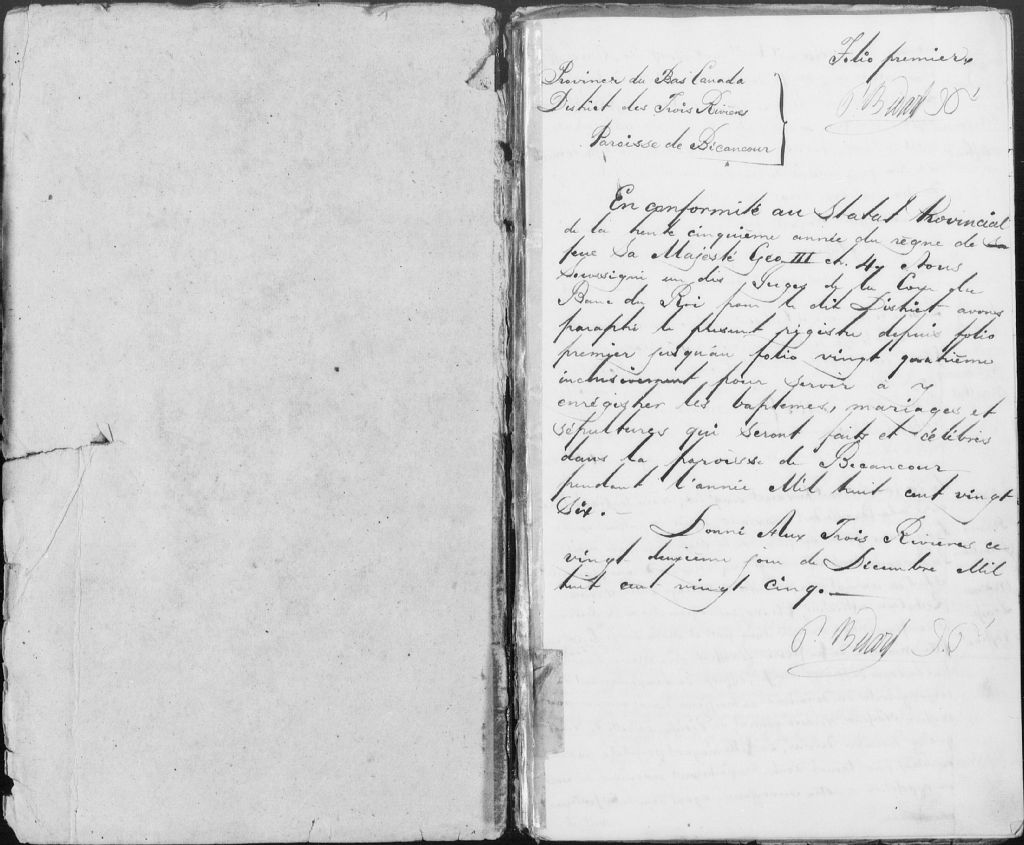 Folio premier
P. Bedard
Province du Bas Canada
District des Trois Rivières
Paroisse de Bécancour
En conformité au Statut Provincial
de la trente cinquième année du règne de Sa
feue Sa Majesté Geo. III ch. 4, Nous
Soussigné un des Juges de la Cour du
Banc du Roi pour le dit District avons
paraphé le présent régistre depuis folio
premier jusqu'au folio vingt quatrième
inclusivement pour servir à y
enrégistrer les baptemes, mariages et
sépultures qui seront faits et célébrés
dans la paroisse de Becancour
pendant l'année Mil huit cent vingt
Six.
Donné Aux Trois Rivieres ce
vingt deuxieme jour de Décembre Mil
huit cent vingt cinq.
P. Bedard